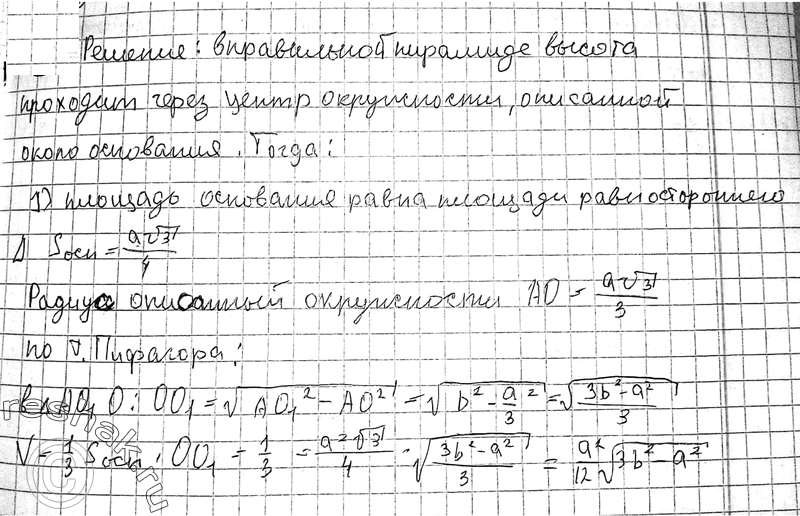 Решение: в правильной пирамиде высота
проходит через центр окружности, описанной
около основания. Тогда:
1) площадь основания равна площади равностороннего
Δ Sосн = a√3/4
Радиус описанный окружности AO = a√3/3
по т. Пифагора:
в ΔAO₁O: OO₁ = √(AO₁² - AO²) = √(b² - a²/3) = √((3b² - a²)/3)
V = 1/3 Sосн · OO₁ = 1/3 = a²√3/4 · √((3b² - a²)/3) = a²/12 √(3b² - a²)
reshak.ru